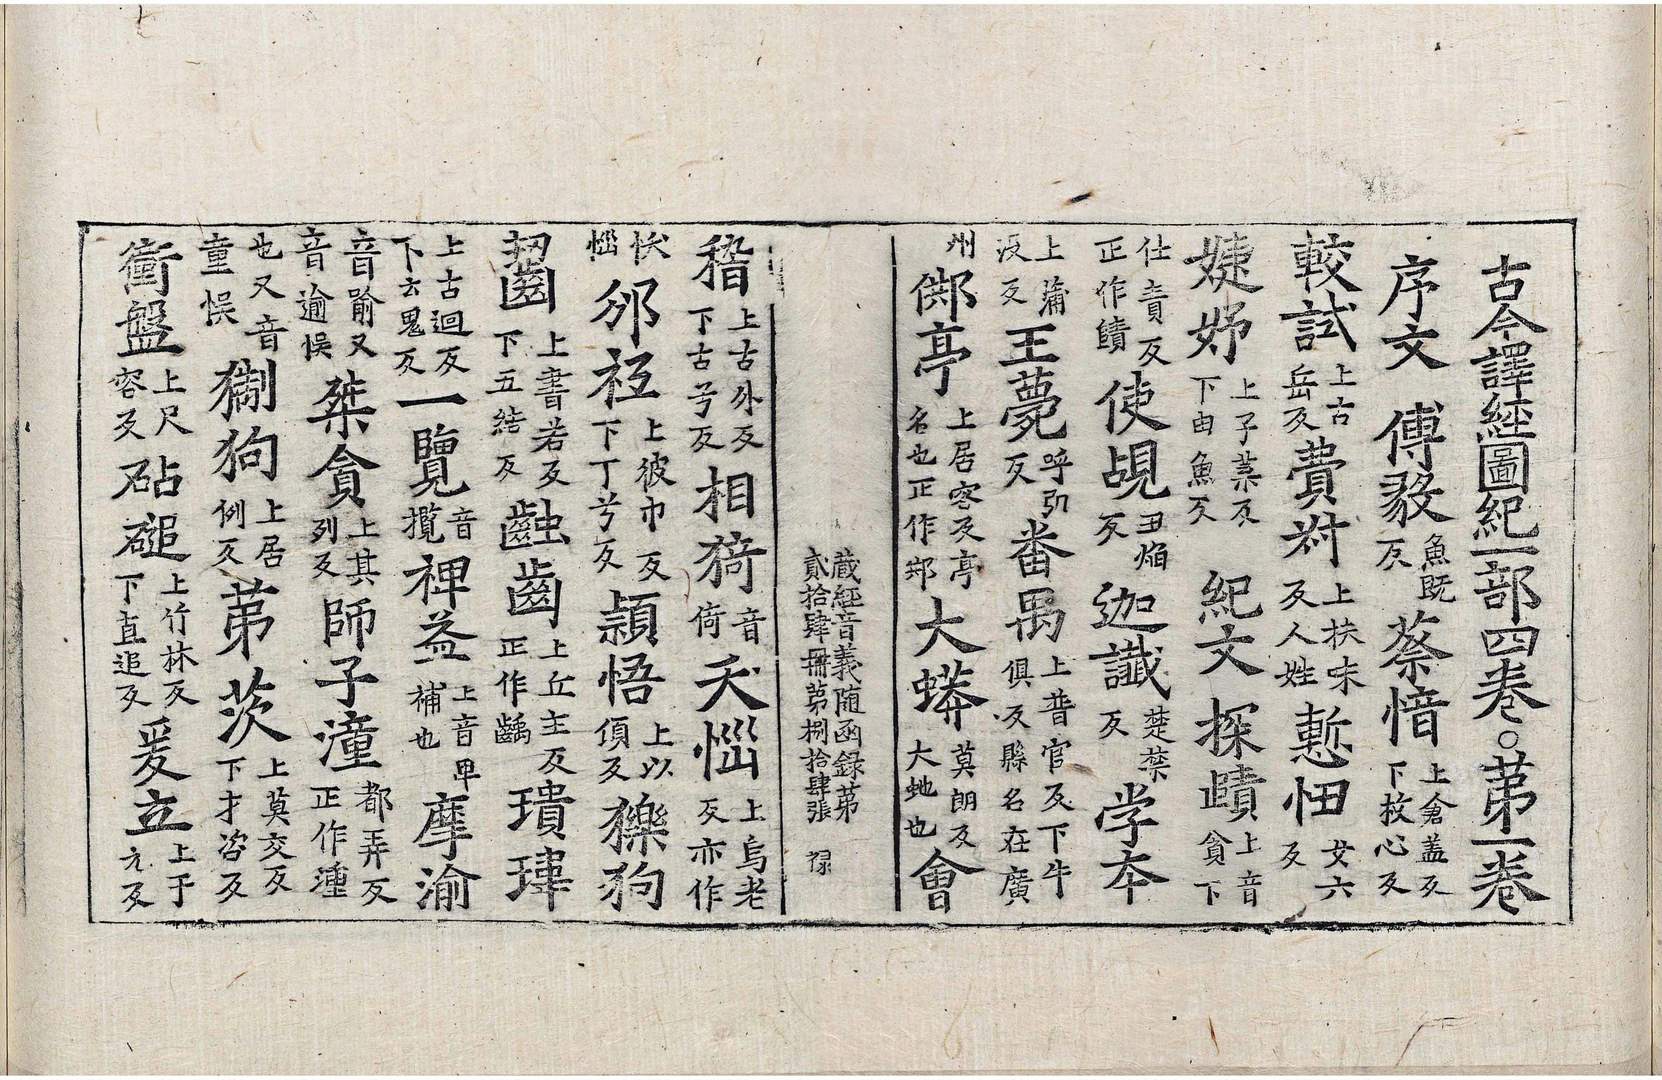 古今譯經圖紀一部四卷。○苐一卷
序文 傅毅魚既反蔡愔上倉蓋反下挍心反
較試上古岳反費祔上扶味反人姓慙忸女六反
婕妤上子葉反下由魚反 紀文 探賾上音貪下
仕責反正作賾使覘丑焔反 迦讖楚禁反 学夲
上蒲沒反王薨呼弘反 畨禺上普官反下牛俱反縣名在廣
州䣝亭上居容反亭名也正作䢼大蟒莫朗反大虵也會
藏經音義随函録苐貳拾肆冊苐捌拾肆張 禄
稽上古外反下古兮反相猗音倚夭惱上烏老反亦作
恼 邠祁上彼巾反下丁兮反穎悟上以傾反㺍狗
齧上書若反下五結反齲齒上丘主反正作齲瓌瑋
上古迴反下云鬼反一覽音攬禆益上音卑補也摩渝
音踰又音逾悮桀貪上其列反師子潼都弄反正作湩
也又音童悮猘狗上居例反苐茨上莫交反下才咨反
衝盤上尺容反砧磓上竹林反下直追反爰立上于元反